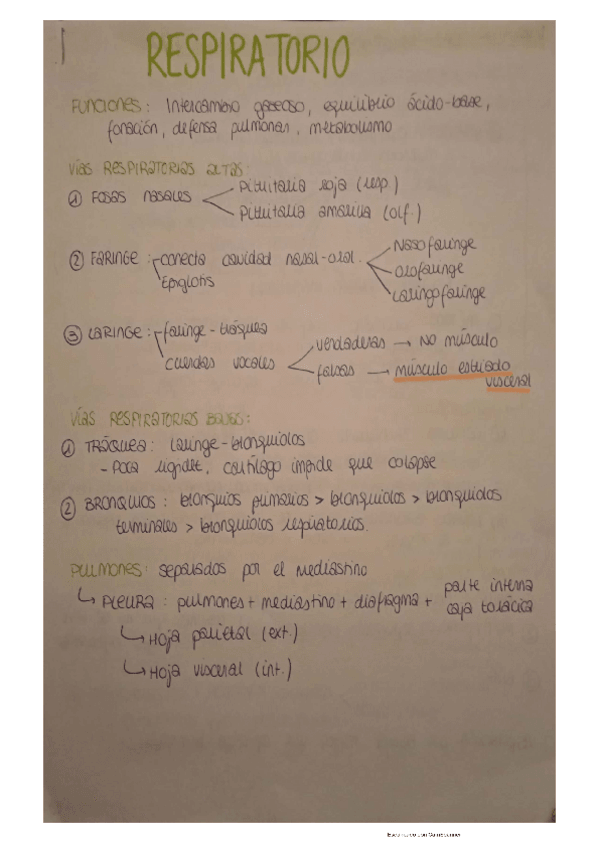 RESPIRATORIO
FUNCIONES: Intercambio gaseoso, equilibrio ácido-base,
fonación, defensa pulmonar, metabolismo
VÍAS RESPIRATORIAS ALTAS:
① FOSAS NASALES
Pituitaria roja (resp.)
Pituitaria amarilla (olf.)
② FARINGE: conecta cavidad nasal-oral.
Epiglotis
Nasofaringe
Orofaringe
Laringofaringe
③ LARINGE: faringe-tráquea
cuerdas vocales
verdaderas → No músculo
falsas → músculo estriado
visceral
VÍAS RESPIRATORIAS BAJAS:
① TRÁQUEA: laringe-bronquiolos
- Poca rigidez, cartílago impide que colapse
② BRONQUIOS: bronquios primarios > bronquiolos > bronquiolos
terminales > bronquiolos respiratorios.
PULMONES: separados por el mediastino
↳ PLEURA: pulmones + mediastino + diafragma + parte interna
caja torácica
↳ Hoja parietal (ext.)
↳ Hoja visceral (int.)
Escaneado con CamScanner